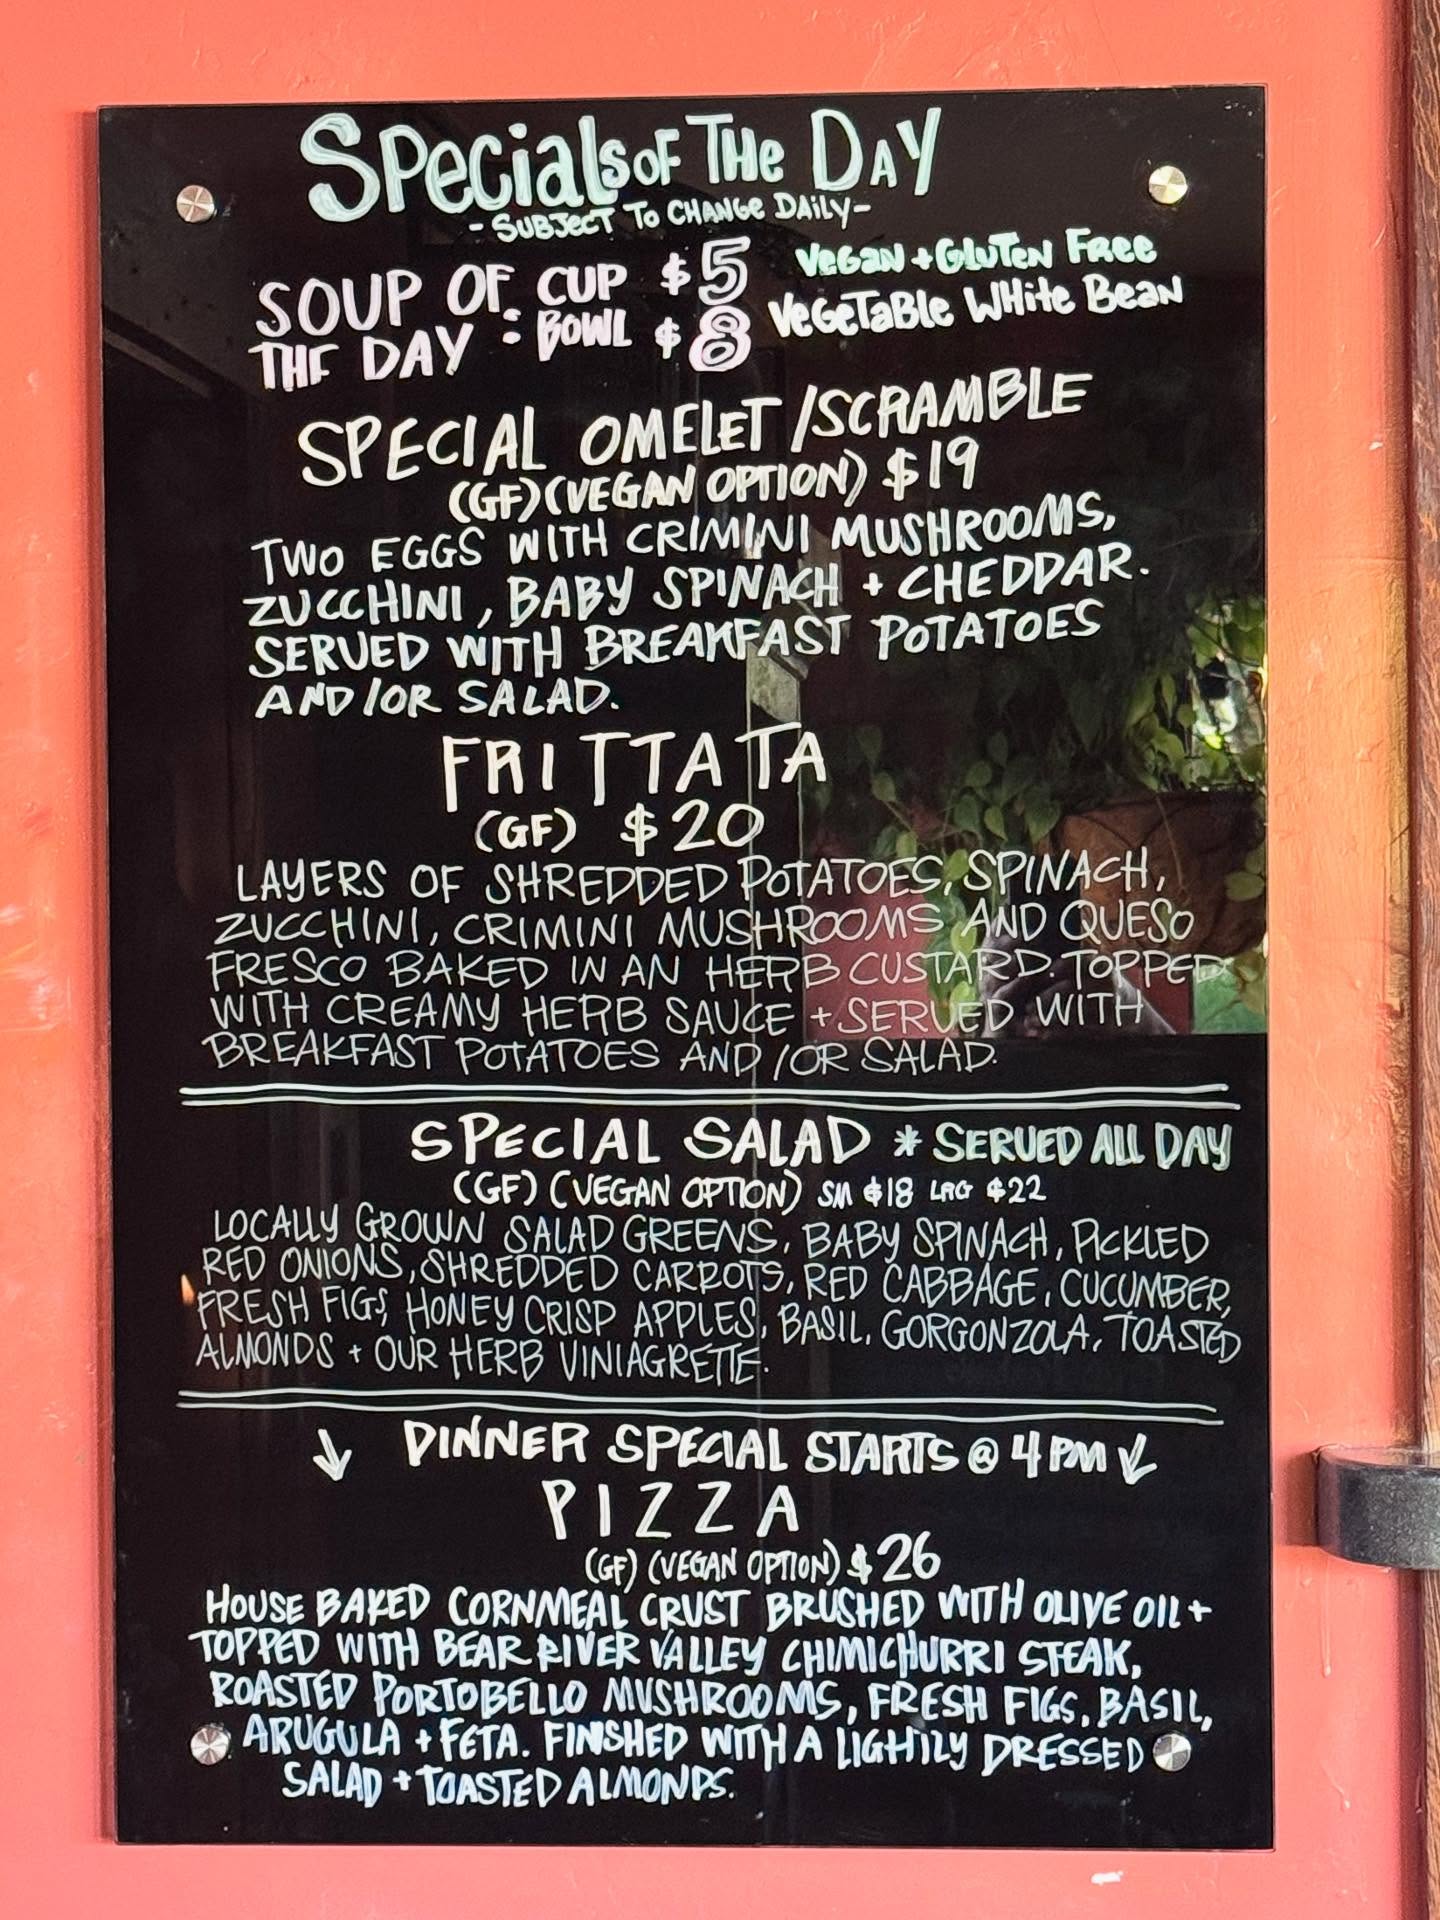 Specials of The Day
- Subject To Change Daily -
SOUP OF THE DAY : CUP $5 BOWL $8
Vegan + Gluten Free
Vegetable White Bean
SPECIAL OMELET /SCRAMBLE
(GF) (VEGAN OPTION) $19
TWO EGGS WITH CRIMINI MUSHROOMS,
ZUCCHINI, BABY SPINACH + CHEDDAR.
SERVED WITH BREAKFAST POTATOES
AND/OR SALAD.
FRITTATA
(GF) $20
LAYERS OF SHREDDED POTATOES, SPINACH,
ZUCCHINI, CRIMINI MUSHROOMS AND QUESO
FRESCO BAKED IN AN HERB CUSTARD. TOPPED
WITH CREAMY HERB SAUCE + SERVED WITH
BREAKFAST POTATOES AND/OR SALAD.
SPECIAL SALAD * SERVED ALL DAY
(GF) (VEGAN OPTION) SM $18 LRG $22
LOCALLY GROWN SALAD GREENS, BABY SPINACH, PICKLED
RED ONIONS, SHREDDED CARROTS, RED CABBAGE, CUCUMBER,
FRESH FIGS, HONEY CRISP APPLES, BASIL, GORGONZOLA, TOASTED
ALMONDS + OUR HERB VINIAGRETTE.
↓ DINNER SPECIAL STARTS @ 4PM ↓
PIZZA
(GF) (VEGAN OPTION) $26
HOUSE BAKED CORNMEAL CRUST BRUSHED WITH OLIVE OIL +
TOPPED WITH BEAR RIVER VALLEY CHIMICHURRI STEAK,
ROASTED PORTOBELLO MUSHROOMS, FRESH FIGS, BASIL,
ARUGULA + FETA. FINISHED WITH A LIGHTLY DRESSED
SALAD + TOASTED ALMONDS.